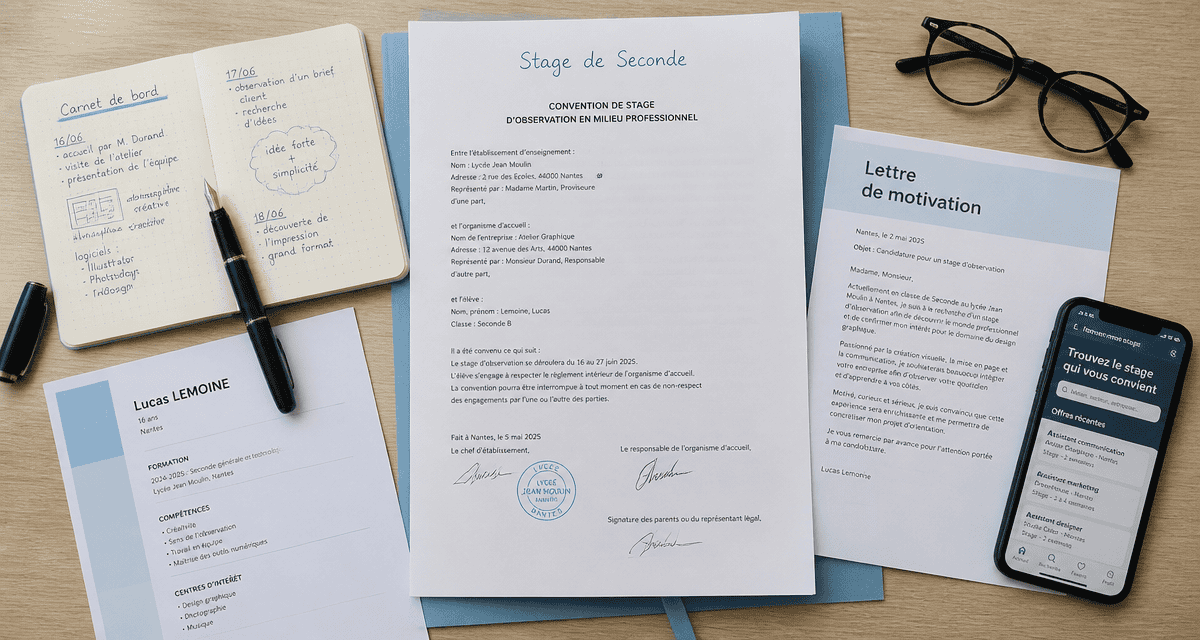 Carnet de bord
16/06
• accueil par M. Durand
• visite de l'atelier
• présentation de l'équipe
créative
logiciels :
• Illustrator
17/06
• observation d'un brief
client
• recherche
d'idées
idée forte
+
simplicité
18/06
• découverte de
• l'impression
• grand format
Lucas LEMOINE
16 ans
Nantes
FORMATION
Seconde générale et
Lycée Jean Moulin, Nantes
COMPÉTENCES
• Créativité
• Sens de l'observation
• Travail en équipe
• Maîtrise des outils numériques
CENTRES D'INTÉRÊT
• Design graphique
• Photographie
• Musique
Stage de Seconde
CONVENTION DE STAGE
D'OBSERVATION EN MILIEU PROFESSIONNEL
Entre l'établissement d'enseignement :
Nom : Lycée Jean Moulin
Adresse : 2 rue des Écoles, 44000 Nantes
Représenté par : Madame Martin, Proviseure
d'une part,
et l'organisme d'accueil :
Nom de l'entreprise : Atelier Graphique
Adresse : 12 avenue des Arts, 44000 Nantes
Représenté par : Monsieur Durand, Responsable
d'autre part,
et l'élève :
Nom, prénom : Lemoine, Lucas
Classe : Seconde B
Il a été convenu ce qui suit :
Le stage d'observation se déroulera du 16 au 27 juin 2025.
L'élève s'engage à respecter le règlement intérieur de l'organisme d'accueil.
La convention pourra être interrompue à tout moment en cas de non-respect
des engagements par l'une ou l'autre des parties.
Fait à Nantes, le 5 mai 2025
Le chef d'établissement,
Le responsable de l'organisme d'accueil,
LYCÉE
LYCÉE
JEAN MOULIN
NANTES
Signature des parents ou du représentant légal,
Lettre
de motivation
Nantes, le 2 mai 2025
Objet : Candidature pour un stage d'observation
Madame, Monsieur,
Actuellement en classe de Seconde au lycée Jean
Moulin à Nantes, je suis à la recherche d'un stage
d'observation afin de découvrir le monde professionnel
et de confirmer mon intérêt pour le domaine du design
graphique.
Passionné par la création visuelle, la mise en page et
la communication, je souhaiterais beaucoup intégrer
votre entreprise afin d'observer votre quotidien
et d'apprendre à vos côtés.
Motivé, curieux et sérieux, je suis convaincu que cette
expérience sera enrichissante et me permettra de
concrétiser mon projet d'orientation.
Je vous remercie par avance pour l'attention portée
à ma candidature.
Lucas Lemoine
Trouvez le stage
qui vous convient
Offres récentes
Assistant communication
Nantes
Stage - 2 semaines
Assistant marketing
Nantes
Stage - 2 semaines
Assistant designer
Nantes
Stage - 2 semaines